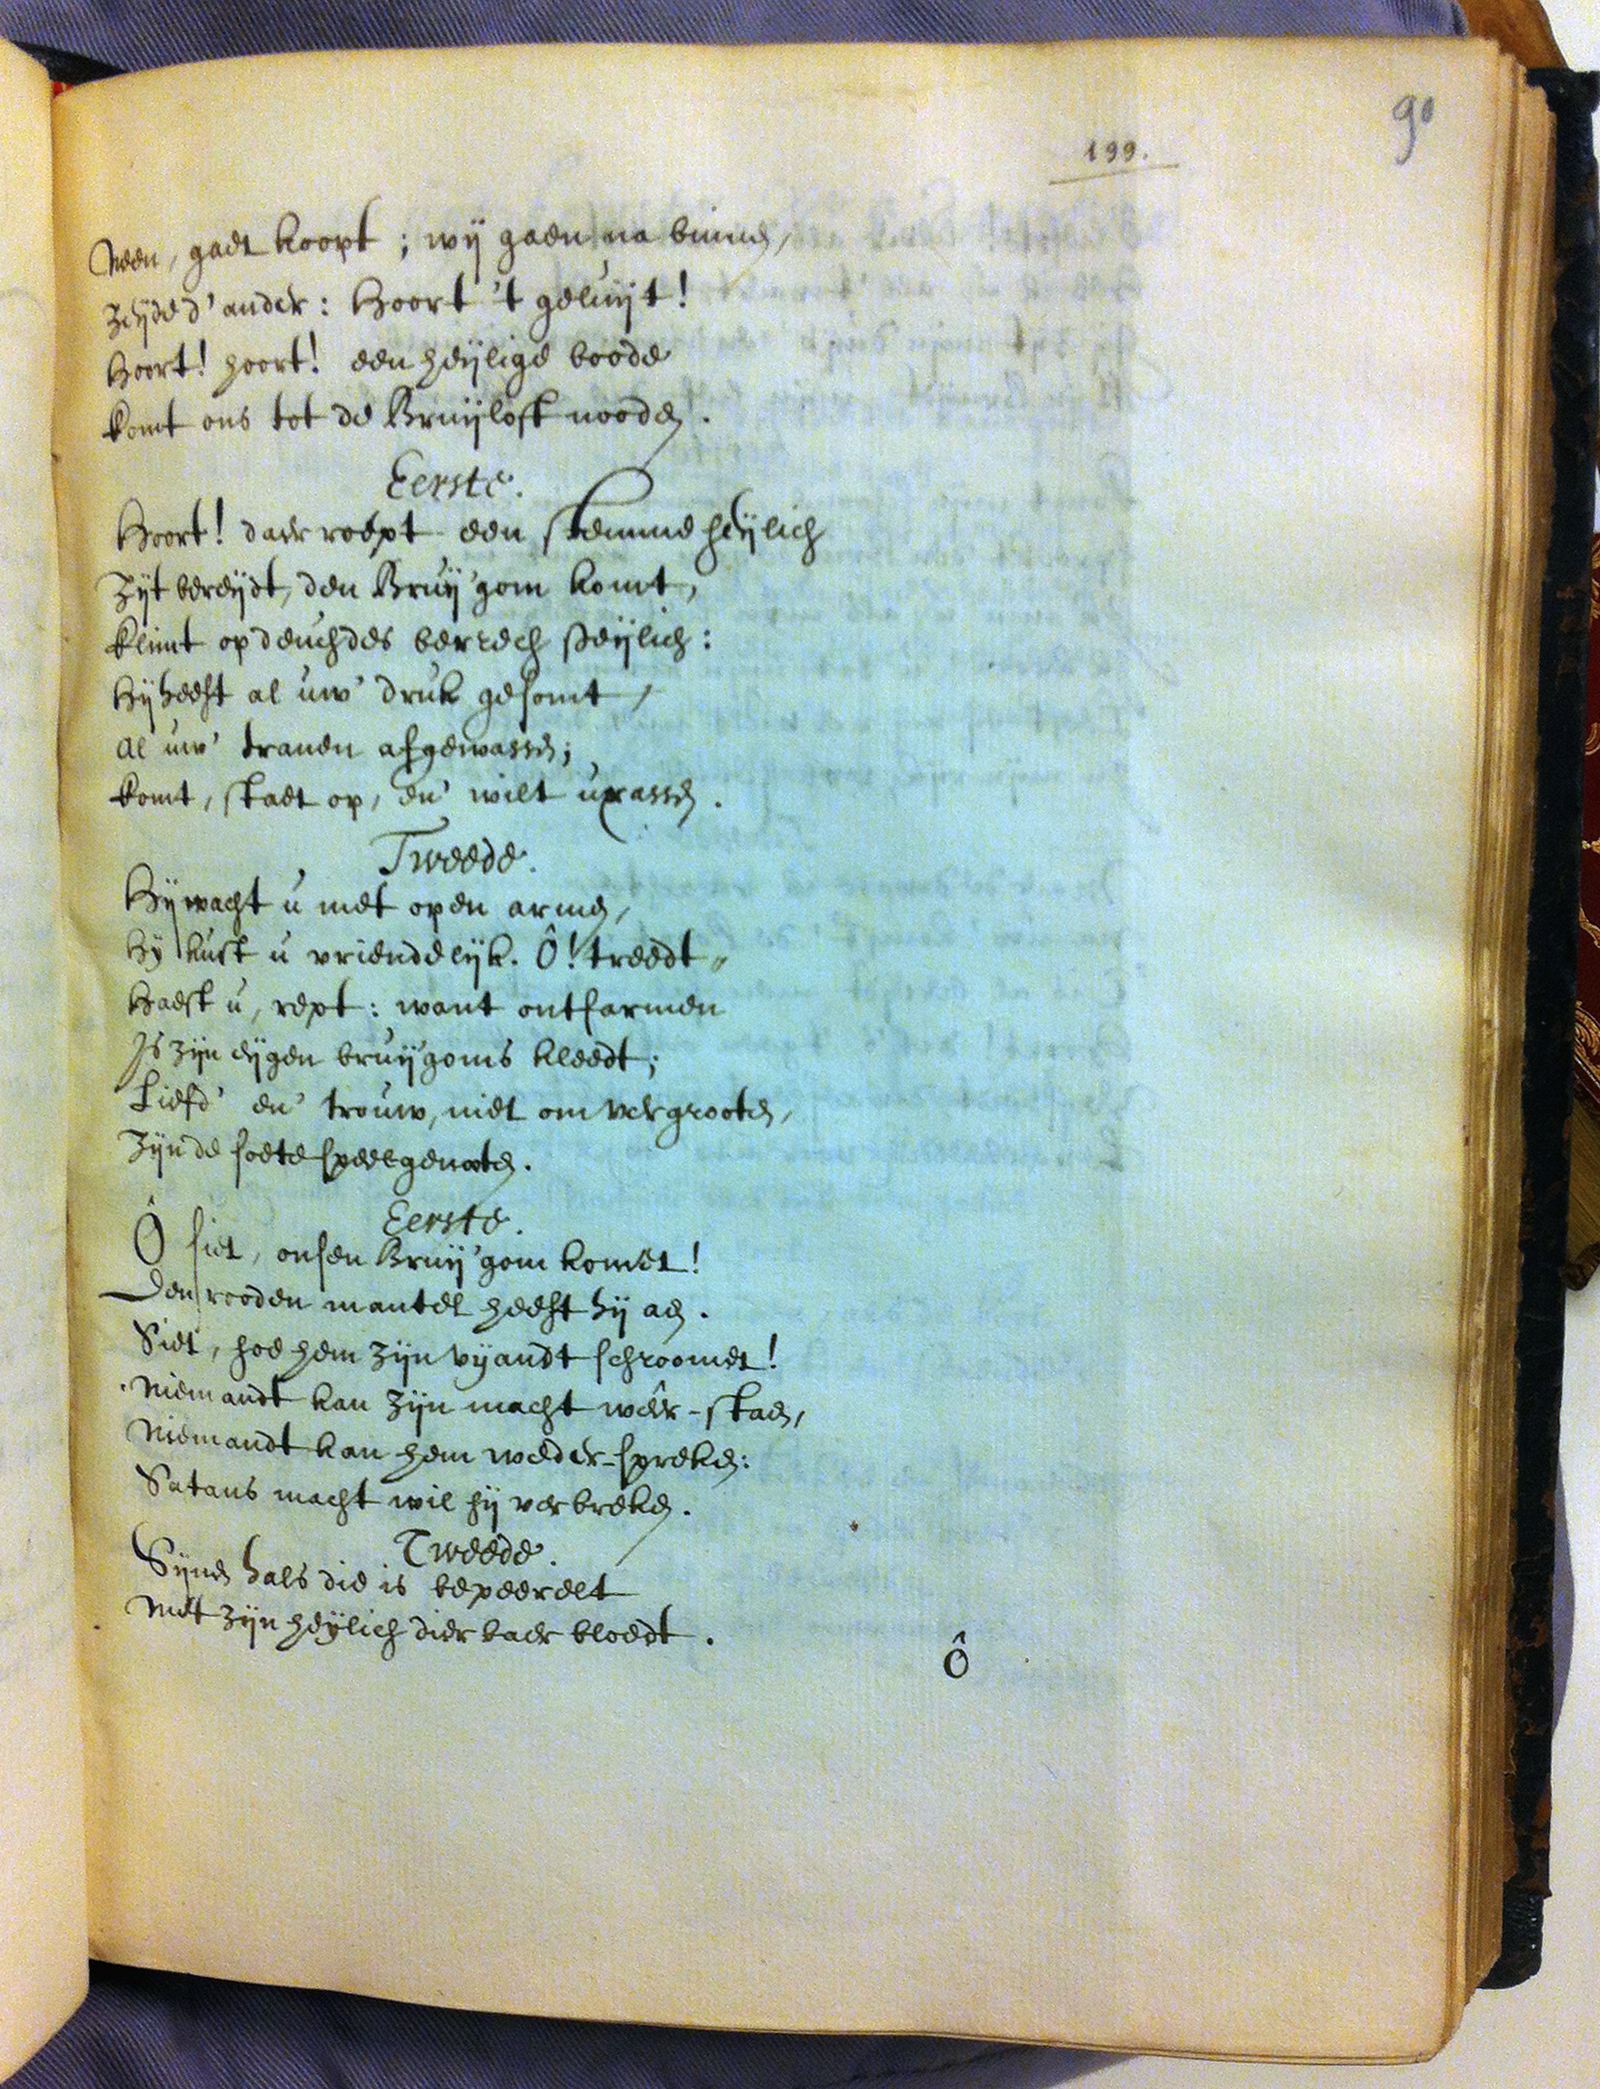 90
199.
Neen, gaet koopt; wij gaen na binnen,
Zeyde d'ander: Hoort 't geluijt!
Hoort! hoort! een heijlige boode
Komt ons tot de Bruijloft nooden.
Eerste.
Hoort! daer roept een stemme heijlich
Zijt bereijdt, den Bruij'gom komt,
Klimt op deuchdes berrech steijlich:
Hij heeft al uw' druk gesomt,
Al uw' tranen afgewassen;
Komt, staet op, en' wilt u passen.
Tweede.
Hij wacht u met open armen,
Hij kust u vriendelijk. Ô! treedt,
Haest u, rept: want ontfarmen
Is zijn eijgen bruijgoms kleedt;
Liefd' en' trouw, niet om vergrooten,
Zijn de soete speelgenoten.
Eerste.
Ô siet, onsen Bruij'gom komet!
Den rooden mantel heeft hij aen.
Siet, hoe hem zijn vijandt schroomet!
Niemandt kan zijn macht wêr-staen,
Niemandt kan hem weder-spreken:
Satans macht wil hij verbreken.
Tweede.
Sijnen hals die is bepeerelt
Met zijn heijlich dierbaer bloedt.
Ô